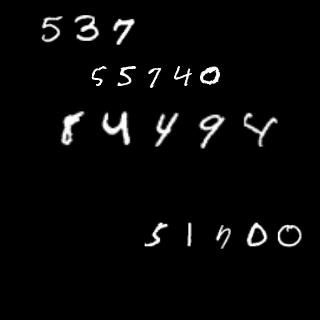 537
55740
84494
51700